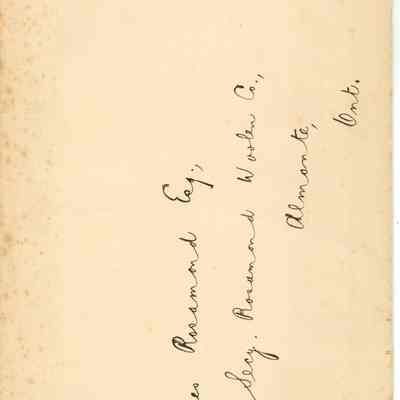 es Rosamond Esq.,
Secy. Rosamond Woolen Co.,
Almonte,
Ont.